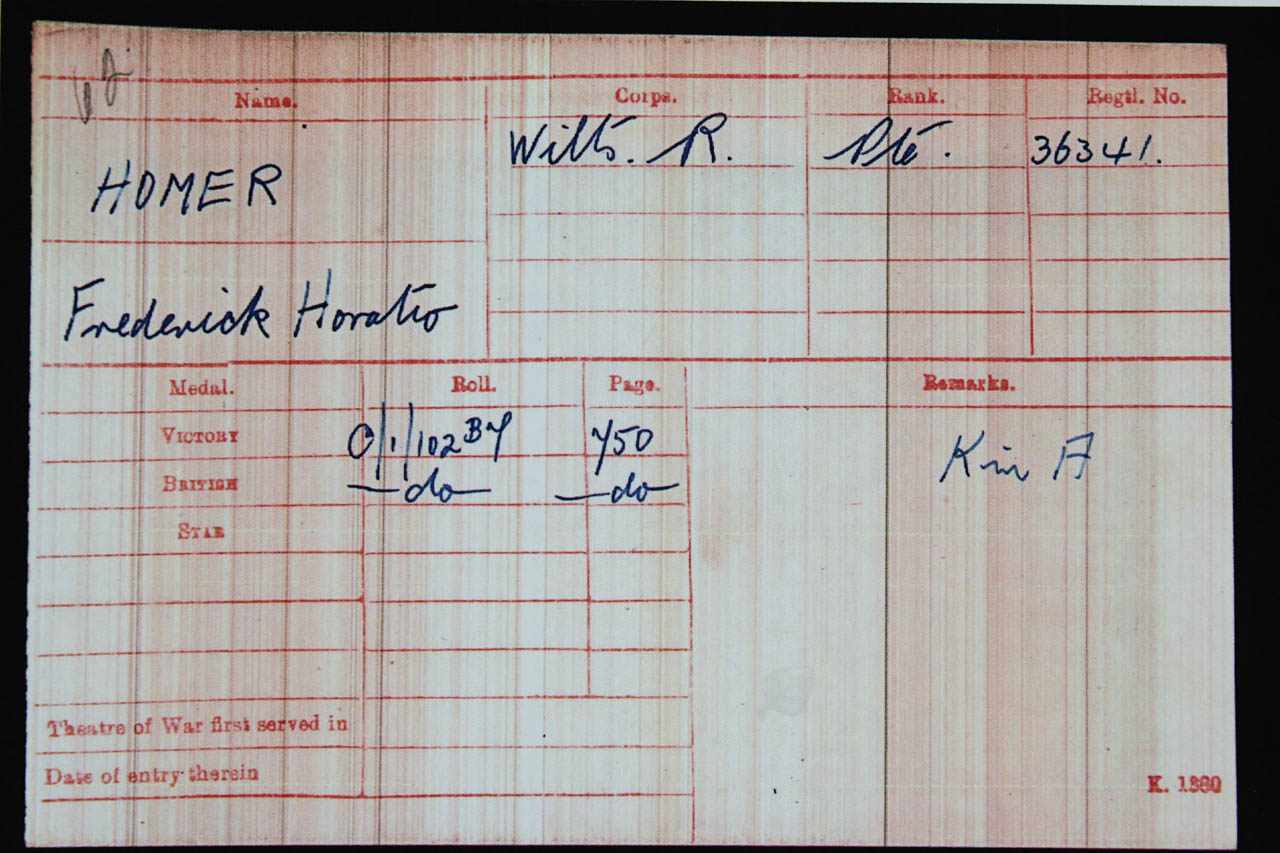 Name. Corps. Rank. Regtl. No.
HOMER Wilts. R. Pte. 36341.
Frederick Horatio
Medal. Roll. Page. Remarks.
VICTORY O/1/102 B7 750 Kin A
BRITISH —do— —do—
STAR
Theatre of War first served in
Date of entry therein
K. 1380